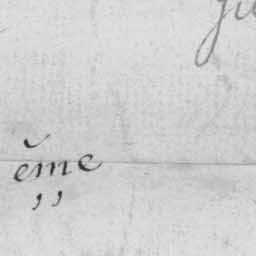 ĕme
,,